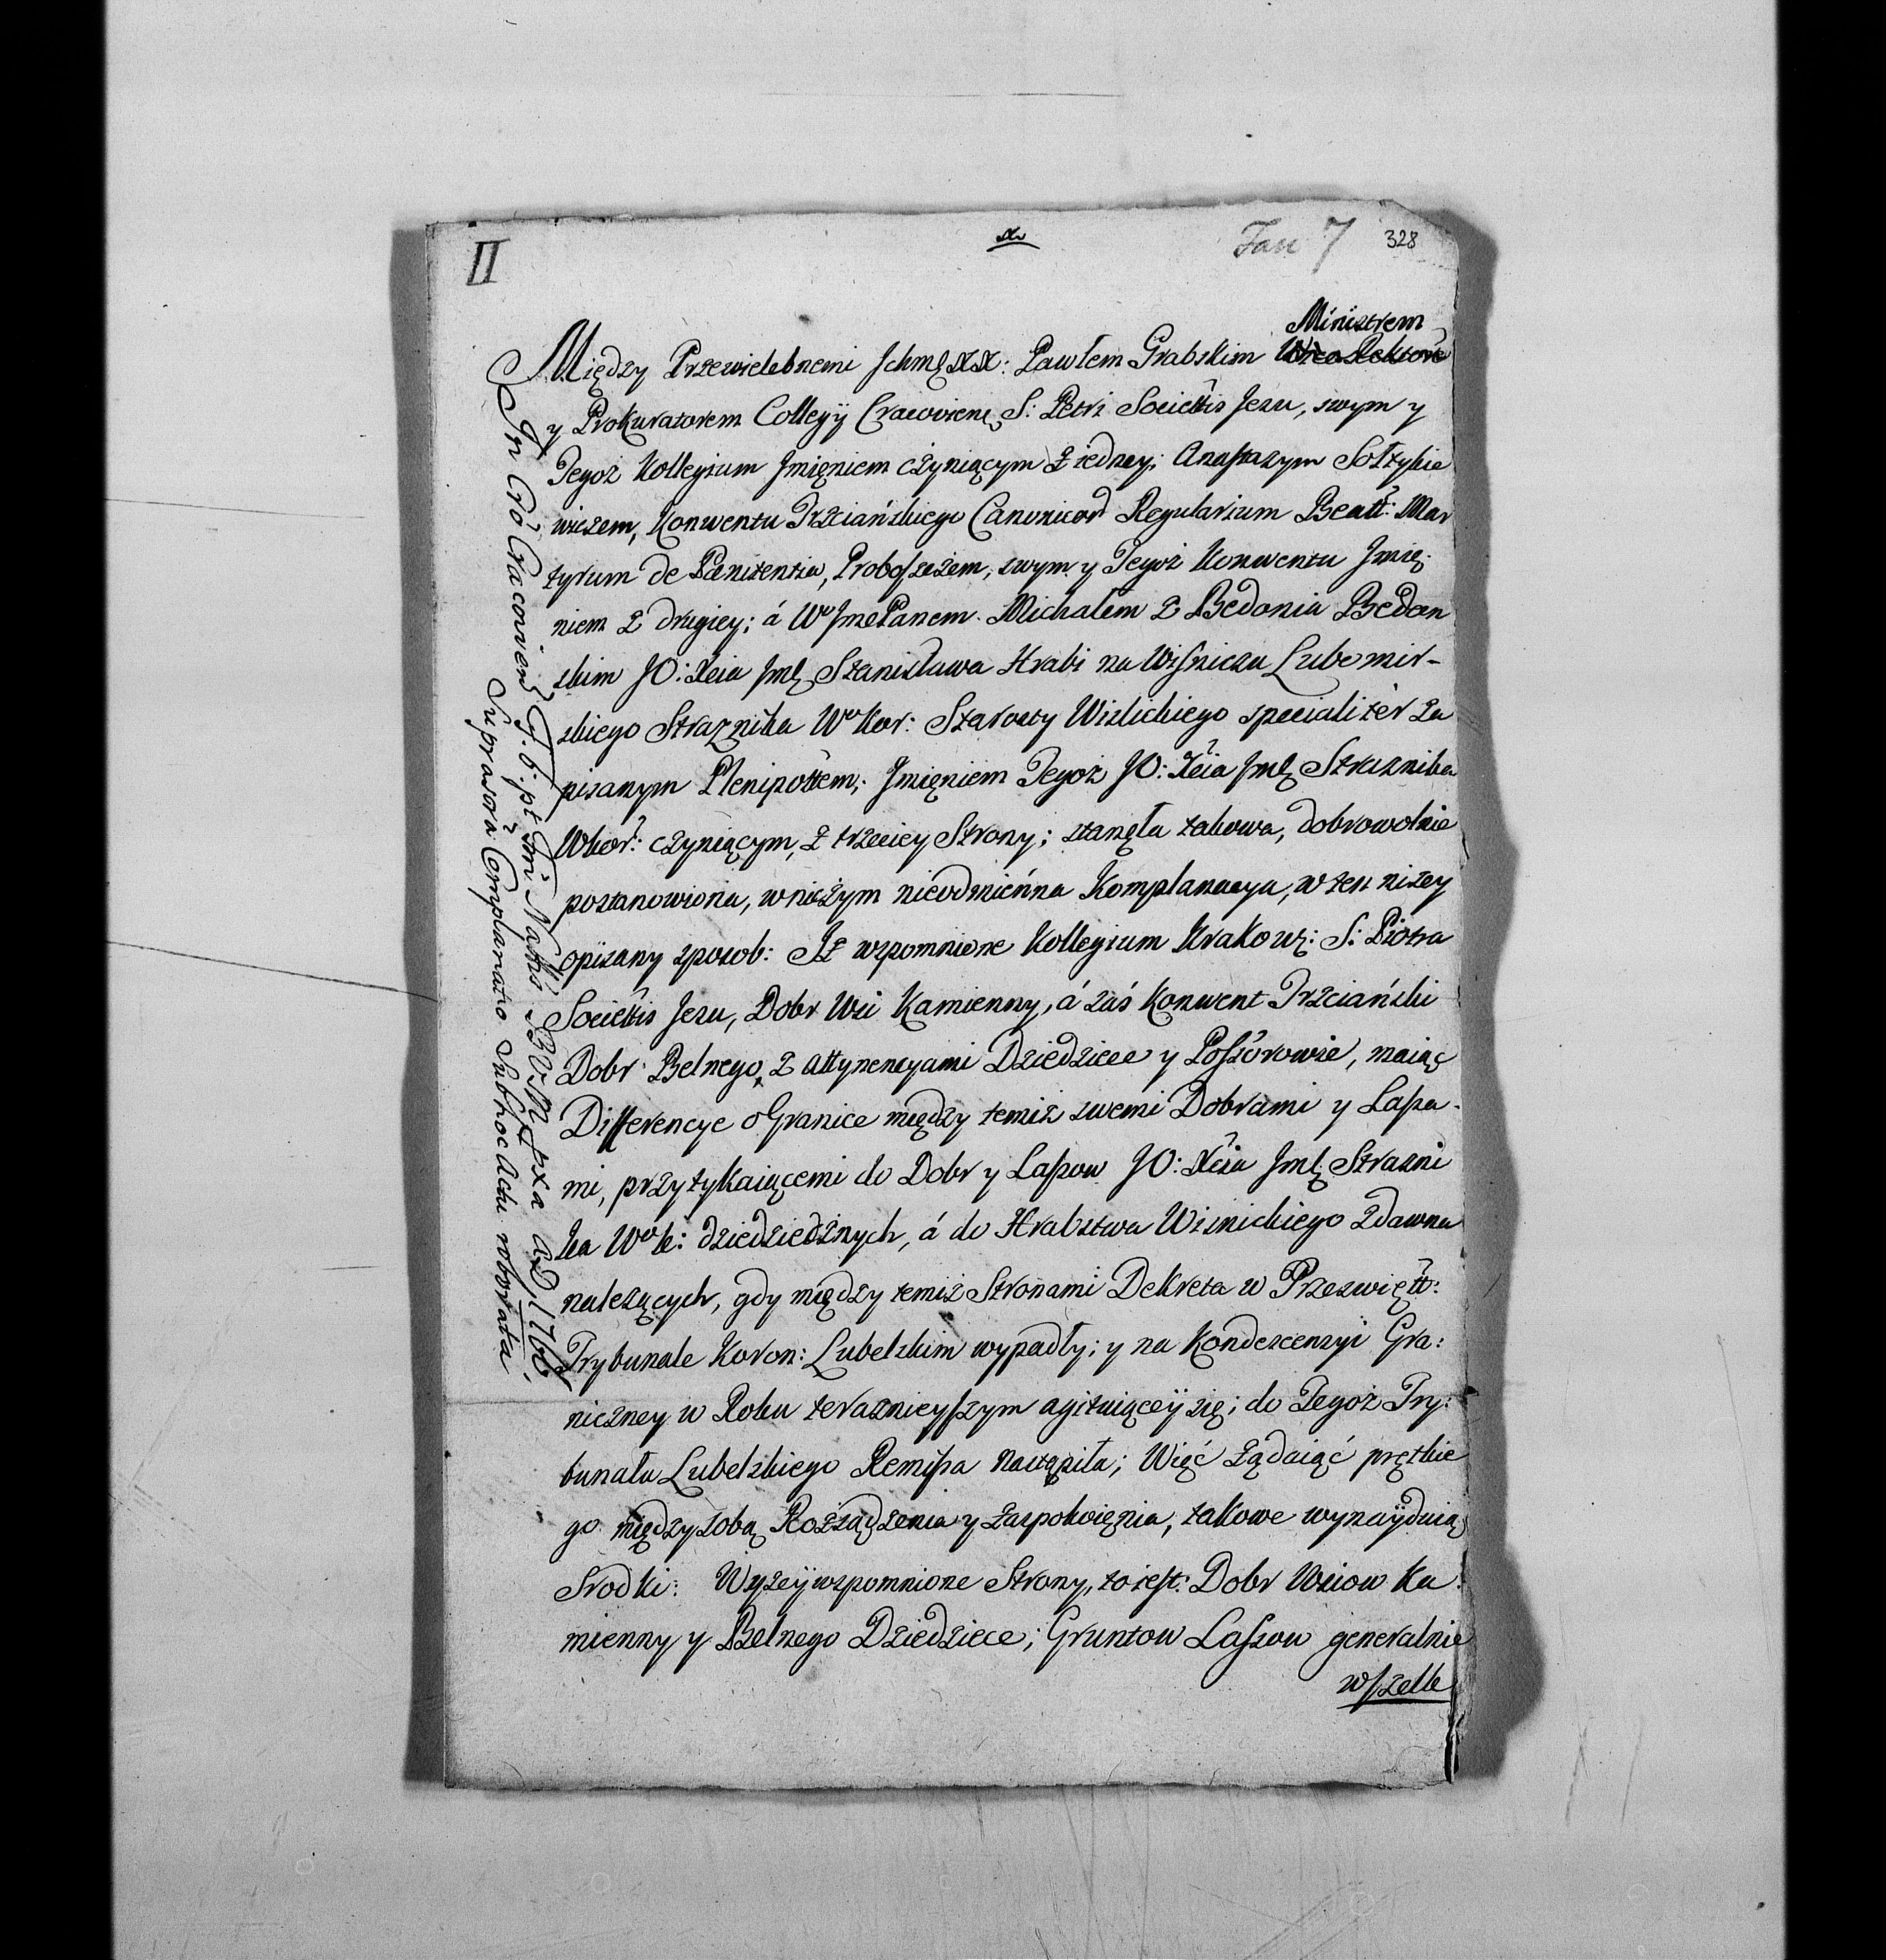 II
Jan 7
328
Ministrem
Między Przewielebnemi Jchmę XX: Pawłem Grabskim
y Prokuratorem Collegÿ Cracoviens S: Petri Societtis Jezu, swym y
Tegoż Kollegium Jmięniem czyniącym z iedney; Anastazym Sołtykie
wiczem, Konwentu Trzciańskiego Canonicor Regularium Beatt: Mar
tyrum de Pænitentia, Proboszczem, swym y Tegoż Konwentu Jmię-
niem z drugiey; á Wo JmcPanem Michałem z Bedonia Bedon
skim JO: Xcia Jmę Stanisława Hrabi na Wiśniczu Lubomir-
skiego Straznika Wo Kor: Starosty Wislickiego specialiter za
pisanym Plenipottem; Jmięniem Tegoż JO: Xcia Jmę Straznika
WKor: czyniącym, z trzeciey Strony; stanęła takowa, dobrowolnie
postanowiona, wniczym nieodmieńna Komplanacya, w ten niżey
opisany sposob: Jż wspomnione Kollegium Krakows: S: Piotra
Societtis Jezu, Dobr Wsi Kamienny, á zaś Konwent Trzciański
Dobr Belnego, z attynencyami Dziedzice y Possorowie, maiąc
Differencye o Granice między temiż swemi Dobrami y Lassa-
mi, przytykaiącemi do Dobr y Lassow JO: Xcia Jmę Strazni
ka Wo k: dziedzicżnych, á do Hrabstwa Wisnickiego zdawna
należących, gdy między temiż Stronami Dekreta w Przeswiętt:
Trybunale Koron: Lubelskim wypadły; y na Kondescensyi Gra:
niczney w Roku teraznieyszym agituiącey się; do Tegoż Try:
bunału Lubelskiego Remissa nastąpiła; Więć żądaiąć prętkie
go między sobą Rozządzenia y zaspokoięnia, takowe wynayduią
Srodki: Wyżey wspomnione Strony, to iest: Dobr Wsiow Ka
mienny y Belnego Dziedzice; Gruntow Lassow generalnie
wszelk
In Cro Cracovien
Suprasora Complanatio sub hoc Actu roborata